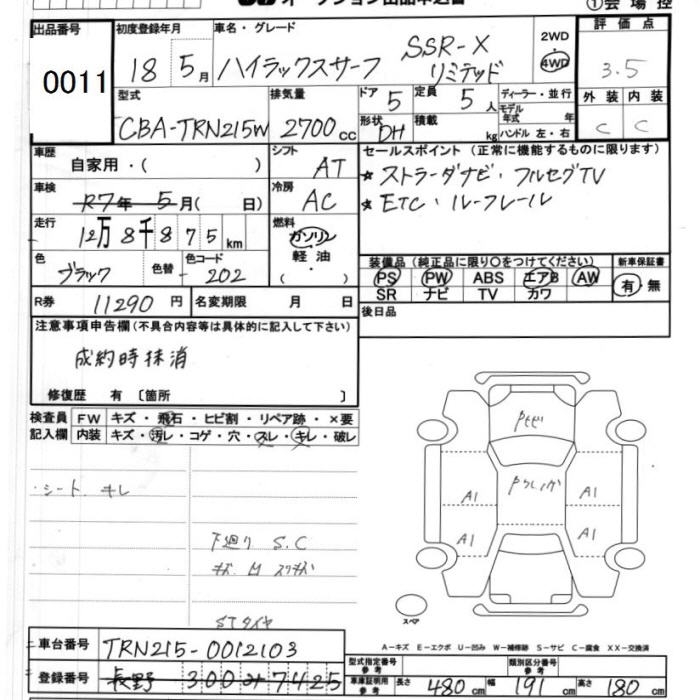 オークション出品申込書
①会場控
出品番号 0011
初度登録年月 18 5月
車名・グレード ハイラックスサーフ SSR-X リミテッド
2WD
4WD
評価点 3.5
型式 CBA-TRN215W
排気量 2700cc
ドア 5
定員 5人
ディーラー・並行
モデル年式 年式
形状 DH
積載 kg
ハンドル 左・右
外装 内装
C C
車歴 自家用・( )
シフト AT
セールスポイント(正常に機能するものに限ります)
★ストラーダナビ・フルセグTV
★ETC・ルーフレール
車検 R7年 5月( 日)
冷房 AC
走行 12万8千875km
燃料 ガソリン
軽油
( ・ )
色 ブラック
色替
色コード 202
装備品(純正品に限り○をつけてください)
新車保証書
PS PW ABS エアB AW
SR ナビ TV カワ
有・無
R券 11290円
名変期限 月 日
後日品
注意事項申告欄(不具合内容等は具体的に記入して下さい)
成約時抹消
修復歴 有〔箇所 〕
検査員 FW キズ・飛石・ヒビ割・リペア跡・×要
記入欄 内装 キズ・汚レ・コゲ・穴・スレ・キレ・破レ
・シート キレ
下廻り S.C
キズ M スリキズ
STタイヤ
A1
A1
A1
A1
スペア
車台番号 TRN215-0012103
A-キズ E-エクボ U-凹み W-補修跡 S-サビ C-腐食 XX-交換済
登録番号 長野 300 そ 7425
型式指定番号 参考
類別区分番号 参考
車庫証明用 参考 長さ 480cm 幅 191cm 高さ 180cm